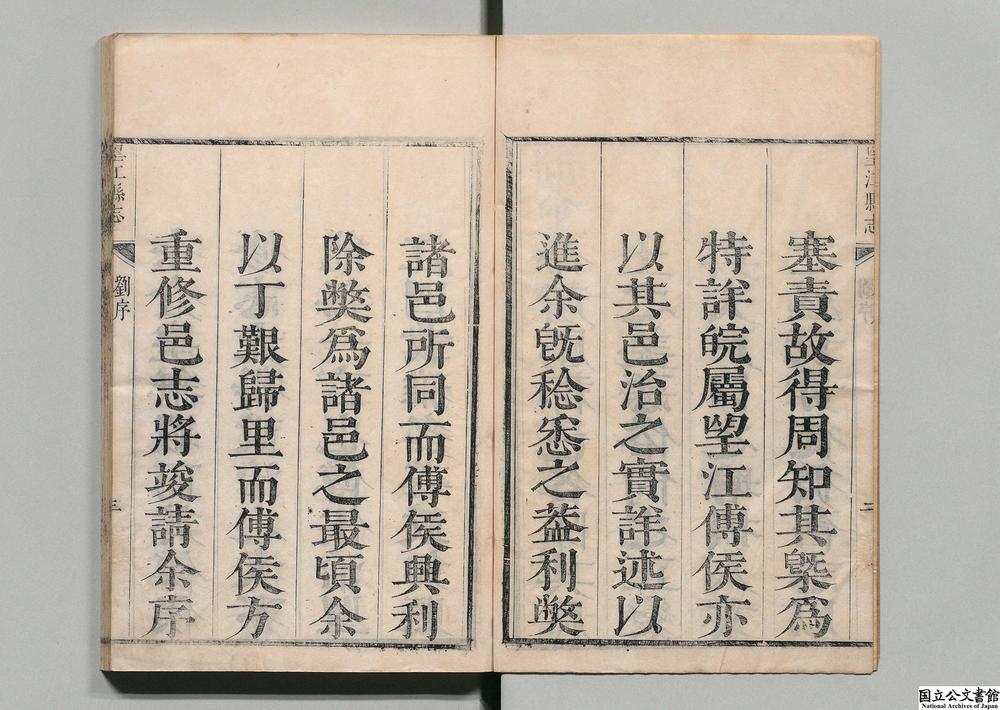 望江縣志
二
塞責故得周知其槩爲
特詳皖屬望江傅侯亦
以其邑治之實詳述以
進余旣稔悉之葢利獘
諸邑所同而傅侯興利
除獘爲諸邑之最頃余
以丁艱歸里而傅侯方
重修邑志將竣請余序
望江縣志
劉序
三
国立公文書館
National Archives of Japan